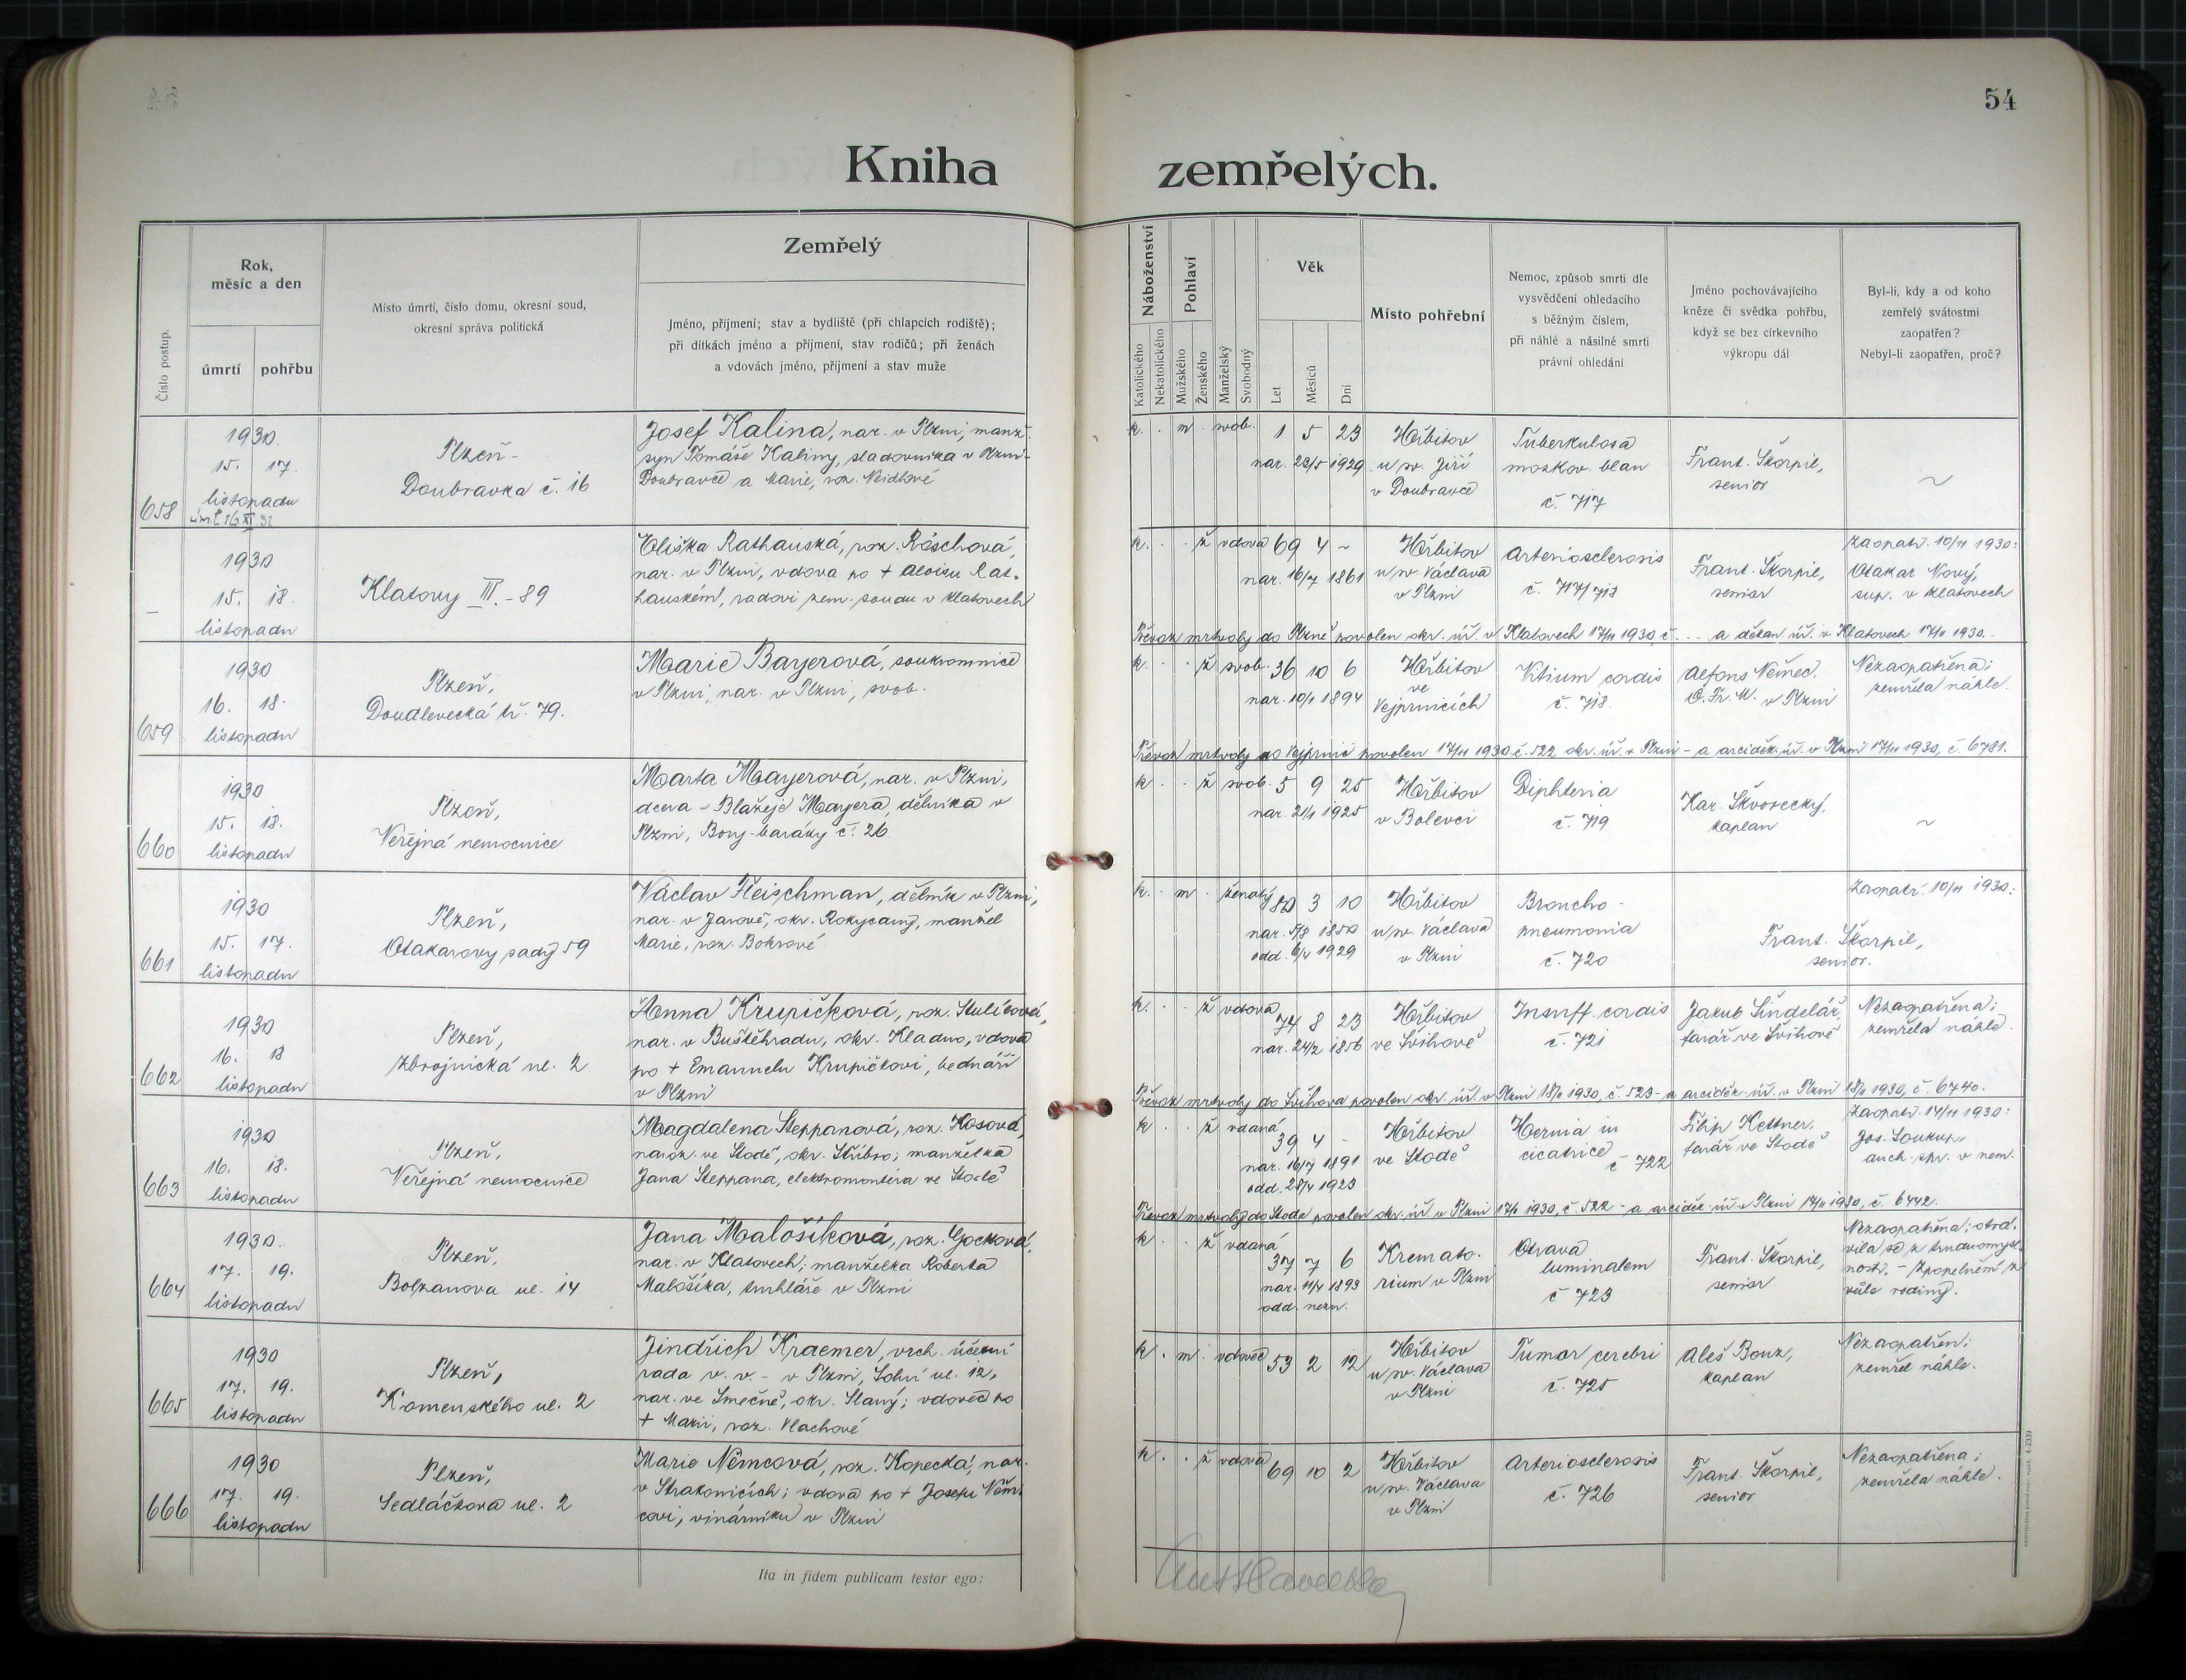 54
Kniha zemřelých.
Číslo postup.
Rok,
měsíc a den
úmrtí
pohřbu
Místo úmrtí, číslo domu, okresní soud,
okresní správa politická
Zemřelý
Jméno, přijmení; stav a bydliště (při chlapcích rodiště);
při dítkách jméno a příjmení, stav rodičů; při ženách
a vdovách jméno, přijmení a stav muže
Náboženství
Katolického
Nekatolického
Pohlaví
Mužského
Ženského
Manželský
Svobodný
Věk
Let
Měsíců
Dní
Místo pohřební
Nemoc, způsob smrti dle
vysvědčení ohledacího
s běžným číslem,
při náhlé a násilné smrti
právní ohledání
Jméno pochovávajícího
kněze či svědka pohřbu,
když se bez církevního
výkropu dál
Byl-li, kdy a od koho
zemřelý svátostmi
zaopatřen?
Nebyl-li zaopatřen, proč?
658
1930.
15. 17.
listopadu
Plzeň-
Doubravka č. 16
Josef Kalina, nar. v Plzni, manž.
syn Tomáše Kaliny, sladovníka v Plzni-
Doubravce a Marie, roz. Neidlové
k. . m . svob. 1 5 23
nar. 23/5 1929
Hřbitov
u sv. Jiří
v Doubravce
Tuberkulosa
mozkov. blan
č. 717
Frant. Škorpil,
senior
~
–
1930
15. 18.
listopadu
Klatovy III.-89
Eliška Rathauská, roz. Röschová,
nar. v Plzni, vdova po + Aloisu Rat-
hauském, radovi zem. soudu v Klatovech
k. . . ž vdova 69 4 ~
nar. 16/7 1861
Hřbitov
u sv. Václava
v Plzni
Arteriosclerosis
č. 717/718
Frant. Škorpil,
senior
Zaopatř. 10/11 1930:
Otakar Nový,
sup. v Klatovech
Převoz mrtvoly do Plzně povolen okr. úř. v Klatovech 17/11 1930, č. ... a děkan. úř. v Klatovech 17/11 1930.
659
1930
16. 18.
listopadu
Plzeň,
Doudlevecká tř. 79.
Marie Bayerová, soukromnice
v Plzni, nar. v Plzni, svob.
k. . . ž svob. 36 10 6
nar. 10/1 1894
Hřbitov
ve
Vejprnicích
Vitium cordis
č. 718.
Alfons Němec,
O. Fr. M. v Plzni
Nezaopatřena;
zemřela náhle.
Převoz mrtvoly do Vejprnic povolen 17/11 1930 č. 522 okr. úř. v Plzni - a arciděk. úř. v Plzni 17/11 1930, č. 6781.
660
1930
15. 18.
listopadu
Plzeň,
Veřejná nemocnice
Marta Mayerová, nar. v Plzni,
dcera - Blažeje Mayera, dělníka v
Plzni, Bory-baráky č. 26
k . . ž svob. 5 9 25
nar. 21/1 1925
Hřbitov
v Bolevci
Diphteria
č. 719
Kar. Škvorecký,
kaplan
~
661
1930
15. 17.
listopadu
Plzeň,
Otakarovy sady 59
Václav Fleischman, dělník v Plzni,
nar. v Jarově, okr. Rokycany, manžel
Marie, roz. Bohrové
k. . m . ženatý 80 3 10
nar. 5/8 1850
odd. 6/4 1929
Hřbitov
u sv. Václava
v Plzni
Broncho-
pneumonia
č. 720
Zaopatř. 10/11 1930:
Frant. Škorpil,
senior.
662
1930
16. 18
listopadu
Plzeň,
Zbrojnická ul. 2
Anna Krupičková, roz. Stulíková,
nar. v Buštěhradu, okr. Kladno, vdova
po + Emanuelu Krupičkovi, bednáři
v Plzni
k. . . ž vdova 74 8 23
nar. 24/2 1856
Hřbitov
ve Švihově
Insuff. cordis
č. 721
Jakub Šindelář,
farář ve Švihově
Nezaopatřena;
zemřela náhle.
Převoz mrtvoly do Švihova povolen okr. úř. v Plzni 18/11 1930, č. 523 - a arciděk. úř. v Plzni 18/11 1930, č. 6740.
663
1930
16. 18.
listopadu
Plzeň,
Veřejná nemocnice
Magdalena Steppanová, roz. Kosová,
naroz. ve Stodě, okr. Stříbro; manželka
Jana Steppana, elektromontéra ve Stodě
k . . ž vdaná 39 4 -
nar. 16/7 1891
odd. 28/4 1923
Hřbitov
ve Stodě
Hernia in
cicatrice
č 722
Filip Kettner,
farář ve Stodě
Zaopatř. 14/11 1930:
Jos. Soukup,
duch. spr. v nem.
Převoz mrtvoly do Stoda povolen okr. úř. v Plzni 17/11 1930, č. 522 - a arciděk. úř. v Plzni 17/11 1930, č. 6442.
664
1930.
17. 19.
listopadu
Plzeň,
Bolzanova ul. 14
Jana Malošíková, roz. Gocková,
nar. v Klatovech; manželka Roberta
Malošíka, truhláře v Plzni
k . . ž vdaná 37 7 6
nar. 11/4 1893
odd. nezn.
Kremato-
rium v Plzni
Otrava
luminalem
č 723
Frant. Škorpil,
senior
Nezaopatřena; otrá-
vila se z trudnomysl-
nosti. - Zpopelnění z
vůle rodiny.
665
1930
17. 19.
listopadu
Plzeň,
Komenského ul. 2
Jindřich Kraemer, vrch. účetní
rada v. v. - v Plzni, Solní ul. 12,
nar. ve Smečně, okr. Slaný; vdovec po
+ Marii, roz. Vlachové
k . m . vdovec 53 2 12
Hřbitov
u sv. Václava
v Plzni
Tumor cerebri
č. 725
Aleš Bouz,
kaplan
Nezaopatřen;
zemřel náhle.
666
1930
17. 19.
listopadu
Plzeň,
Sedláčkova ul. 2
Marie Němcová, roz. Kopecká, nar.
v Strakonicích; vdova po + Josefu Něm-
covi, vinárníku v Plzni
k. . . ž vdova 69 10 2
Hřbitov
u sv. Václava
v Plzni
Arteriosclerosis
č. 726
Frant. Škorpil,
senior
Nezaopatřena;
zemřela náhle.
Ita in fidem publicam testor ego: